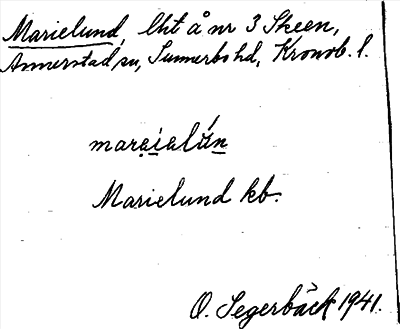 Marielund, lht å nr 3 Skeen,
Annerstad sn, Sunnerbo hd, Kronob. l.
maraialún
Marielund kb.
O. Segerbäck 1941.